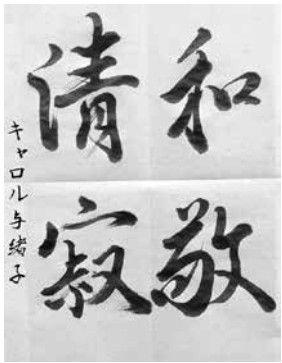 和敬
清寂
キャロル与緒子